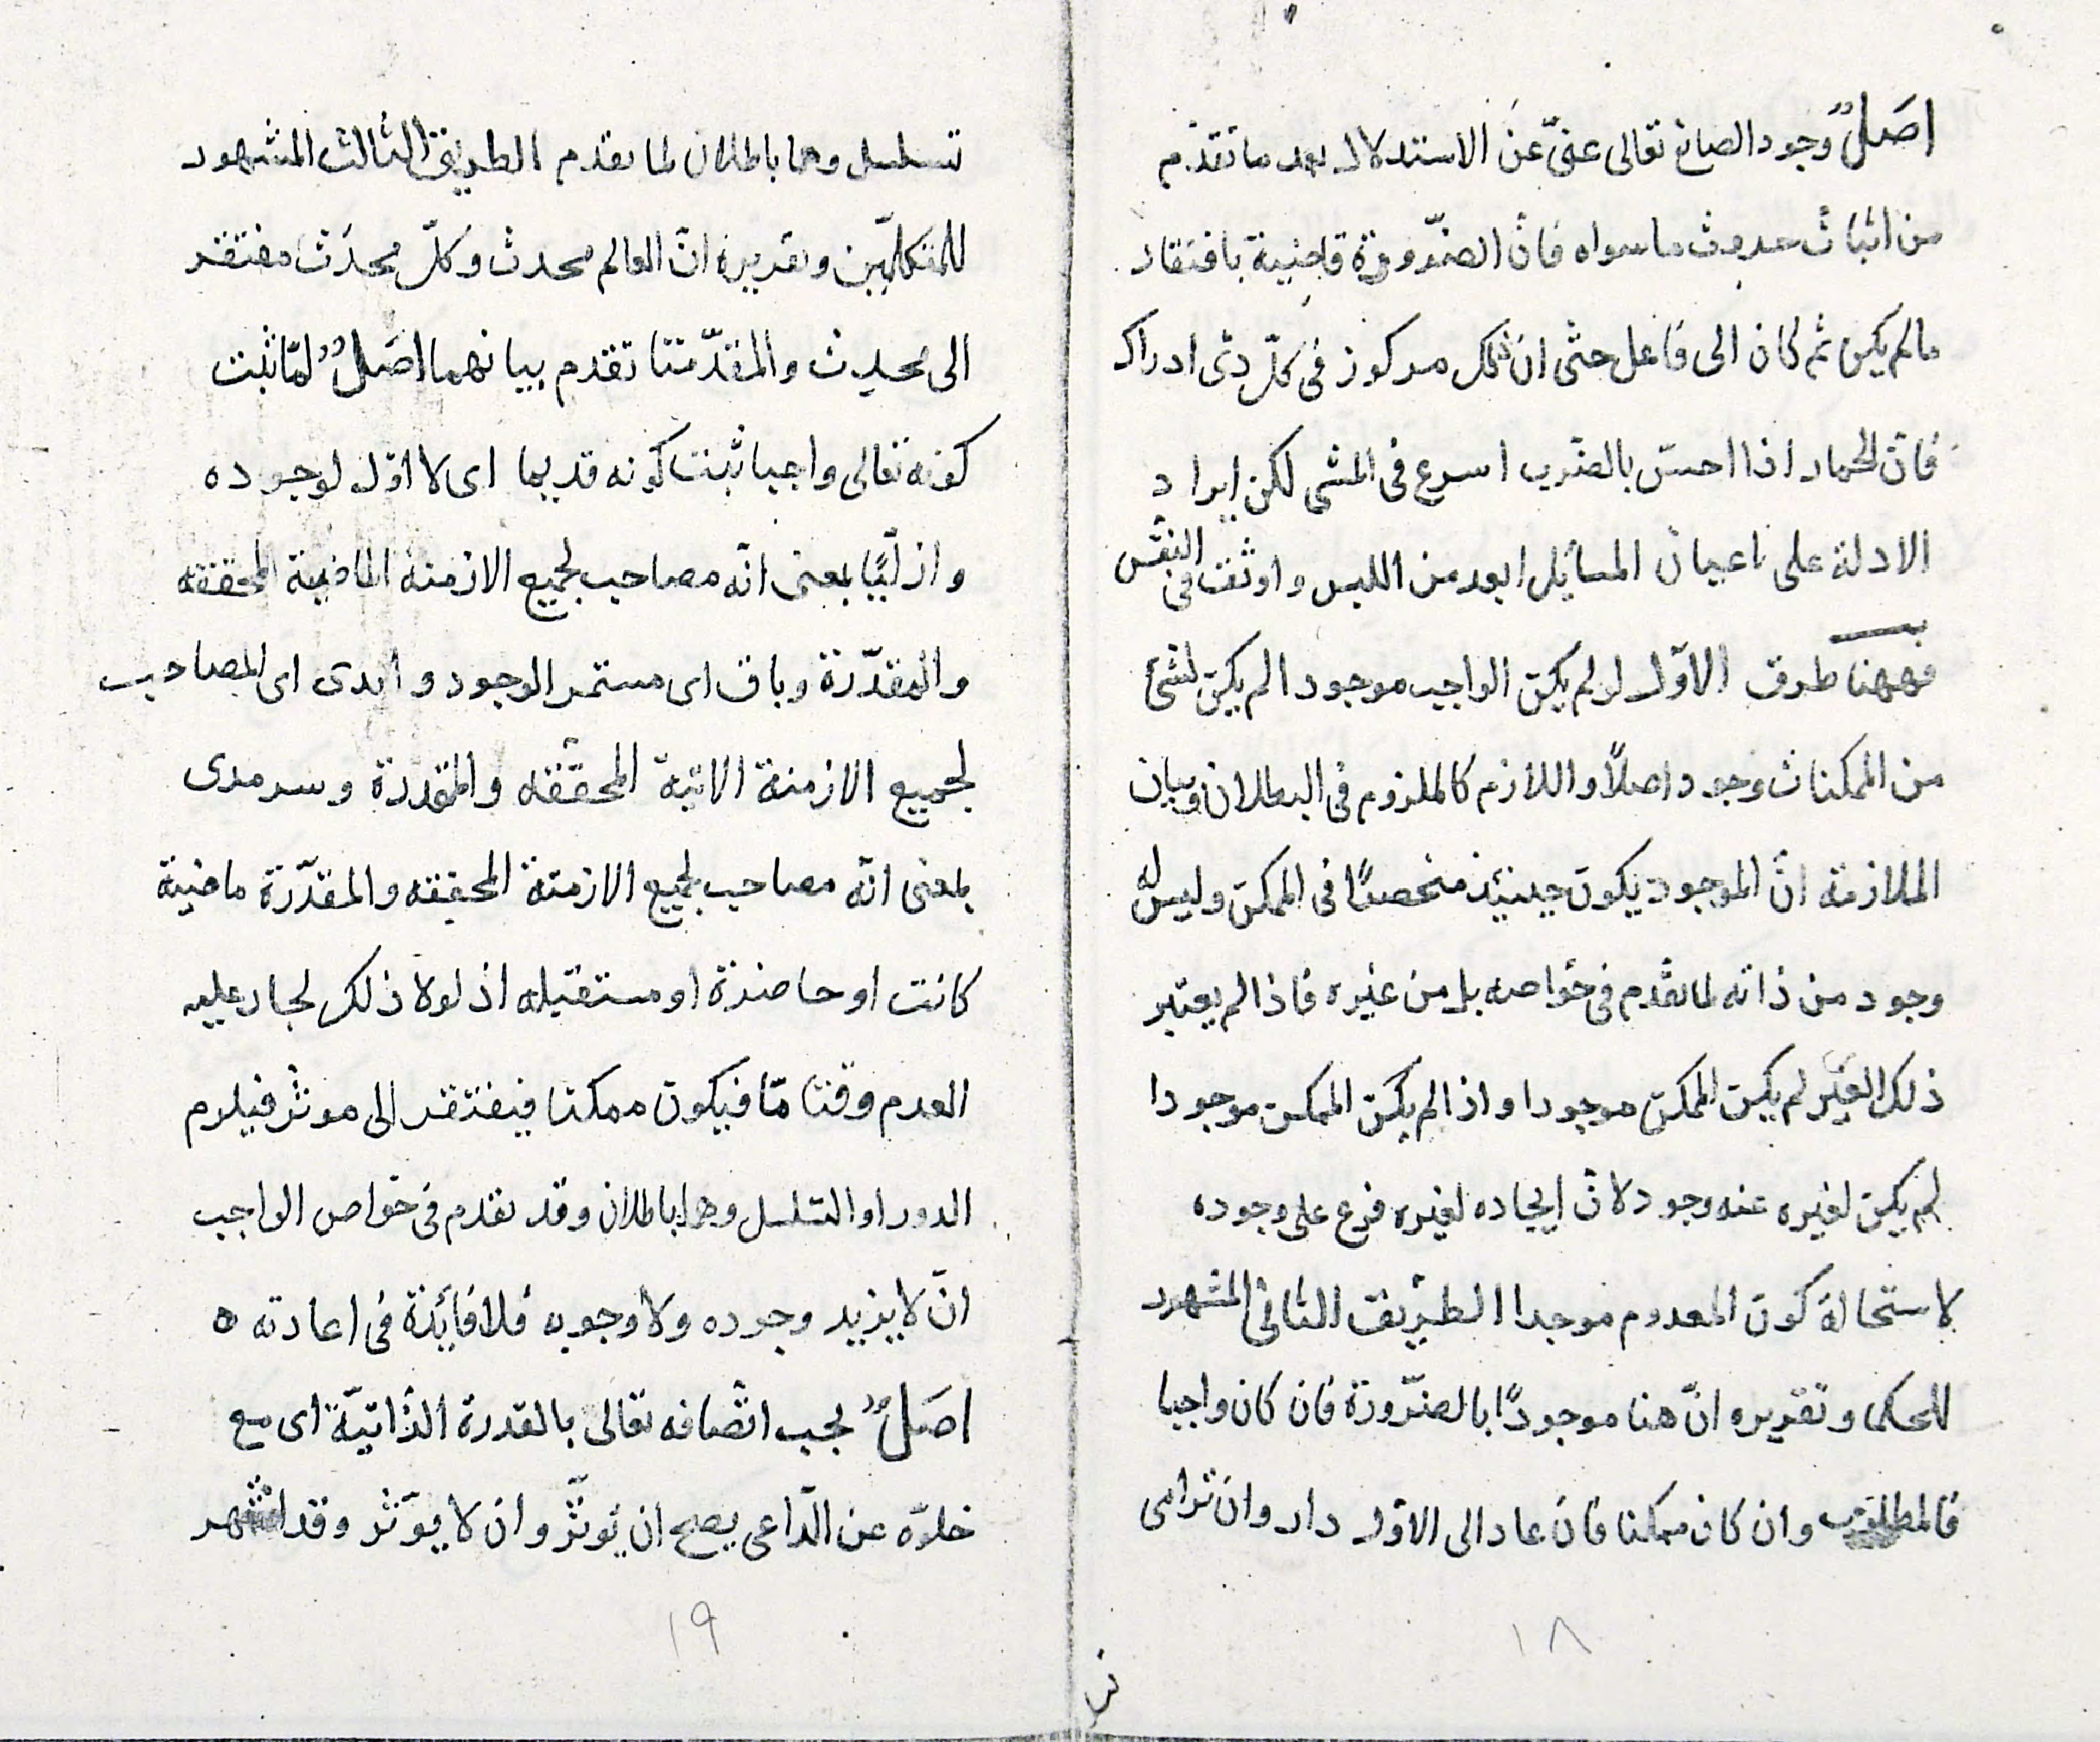 اصَلٌ وجود الصانع تعالى غنىّ عن الاستدلال بعد ما تقدّم
من اثبات حدوث ما سواه فانّ الضّرورة قاضية بافتقار
ما لم يكن ثم كان الى فاعل حتى ان ذلك مركوز فى كلّ ذى ادراك
فانّ الحمار اذا احسّ بالضرب اسرع فى المشى لكن ايراد
الادلة على اعيان المسايل ابعد من اللبس واوثق فى النفس
فههنا طرق الاوّل لو لم يكن الواجب موجودا لم يكن لشئ
من الممكنات وجود اصلاً واللازم كالملزوم فى البطلان وبيان
الملازمة انّ الموجود يكون حينئذ منحصرًا فى الممكن وليس له
وجود من ذاته لما تقدم فى خواصه بل من غيره فاذا لم يعتبر
ذلك الغير لم يكن الممكن موجودا واذا لم يكن الممكن موجودا
لم يكن لغيره عنه وجود لانّ ايجاده لغيره فرع على وجوده
لاستحالة كون المعدوم موجدا الطريق الثانى المشهور
للحكما وتقريره انّ هنا موجودًا بالضّرورة فان كان واجبا
فالمطلوب وان كان ممكنا فان عاد الى الاوّل دار وان ترامى
١٨
تسلسل وهما باطلان لما تقدم الطريق الثالث المشهور
للمتكلّمين وتقريره انّ العالم محدث وكلّ محدَث مفتقر
الى محدِث والمقدّمتا تقدم بيانهما اصَلٌ لمّا ثبت
كونه تعالى واجبا ثبت كونه قديما اى لا اوّل لوجوده
وازليًّا بمعنى انّه مصاحب لجميع الازمنة الماضية المحققه
والمقدّرة وباق اى مستمر الوجود وابدى اى المصاحب
لجميع الازمنة الاتية المحقّقه والمقدرة وسرمدى
بمعنى انّه مصاحب لجميع الازمنة المحققه والمقدّرة ماضية
كانت او حاضرة او مستقبله اذ لولا ذلك لجاز عليه
العدم وقتا مّا فيكون ممكنا فيفتقر الى موثر فيلزم
الدور او التسلسل وهما باطلان وقد تقدم فى خواص الواجب
انّ لا يزيد وجوده ولا وجوبه فلا فايدة فى اعادته ه
اصَلٌ يجب اتّصافه تعالى بالقدرة الذّاتيّة اى مع
خلوّه عن الدّاعى يصح ان يوثّر وان لا يوثر وقد اشتهر
١٩